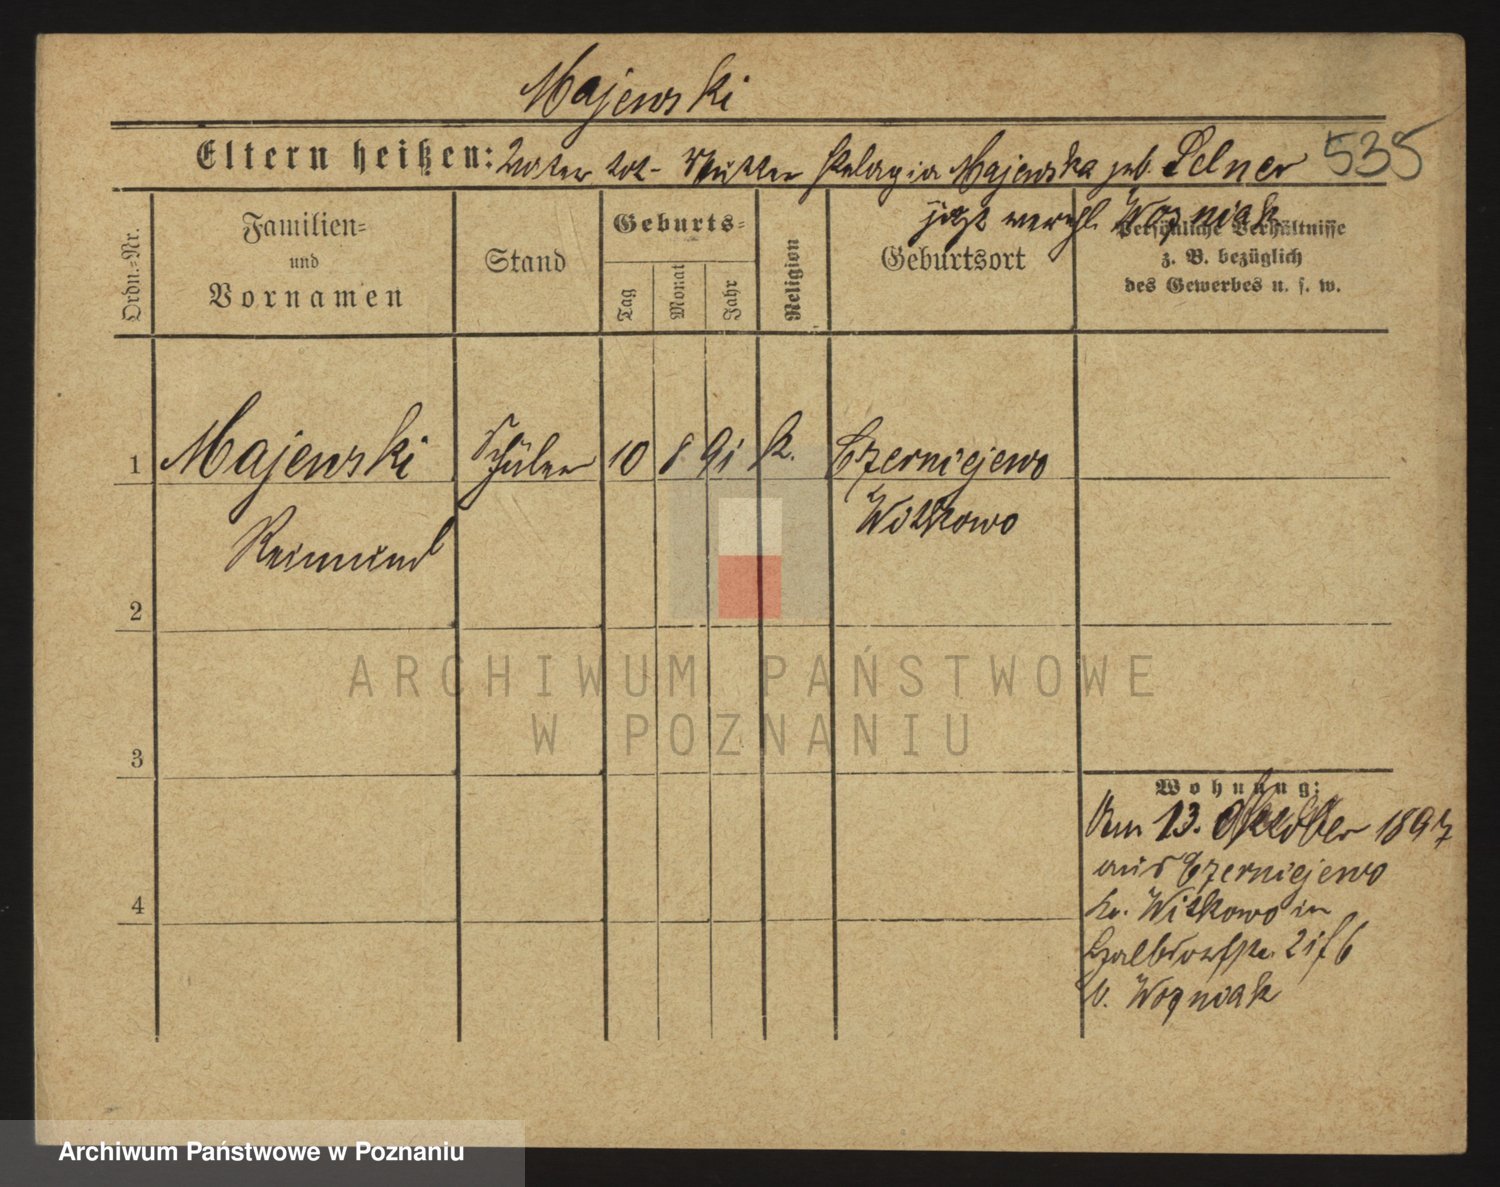 Majewski
Eltern heißen: Vater tot - Mutter Pelagia Majewska geb. Pelner 535
jetzt verehl. Wozniak
Ordn.-Nr.
Familien=
und
Vornamen
Stand
Geburts=
Tag
Monat
Jahr
Religion
Geburtsort
Persönliche Verhältnisse
z. B. bezüglich
des Gewerbes u. s. w.
1 Majewski Schüler 10 8 91 k. Czerniejewo
Reimund Witkowo
2
3
4
Wohnung:
Am 13. Oktober 1897
aus Czerniejewo
Kr. Witkowo in
Halbdorfstr.
b. Wozniak
ARCHIWUM PAŃSTWOWE
W POZNANIU
Archiwum Państwowe w Poznaniu